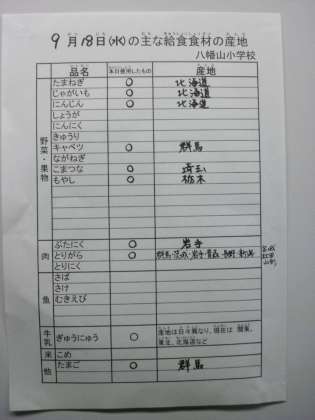 9月18日(水)の主な給食食材の産地
八幡山小学校
品名 本日使用したもの 産地
野菜・果物
たまねぎ ○ 北海道
じゃがいも ○ 北海道
にんじん ○ 北海道
しょうが
にんにく
きゅうり
キャベツ ○ 群馬
ながねぎ
こまつな ○ 埼玉
もやし ○ 栃木
肉
ぶたにく ○ 岩手
とりがら ○ 群馬・茨城・岩手・青森・長野・新潟
とりにく
魚
さば
さけ
むきえび
牛乳
ぎゅうにゅう ○ 産地は日々異なり、現在は 関東、
東北、北海道など
米 こめ
他 たまご ○ 群馬